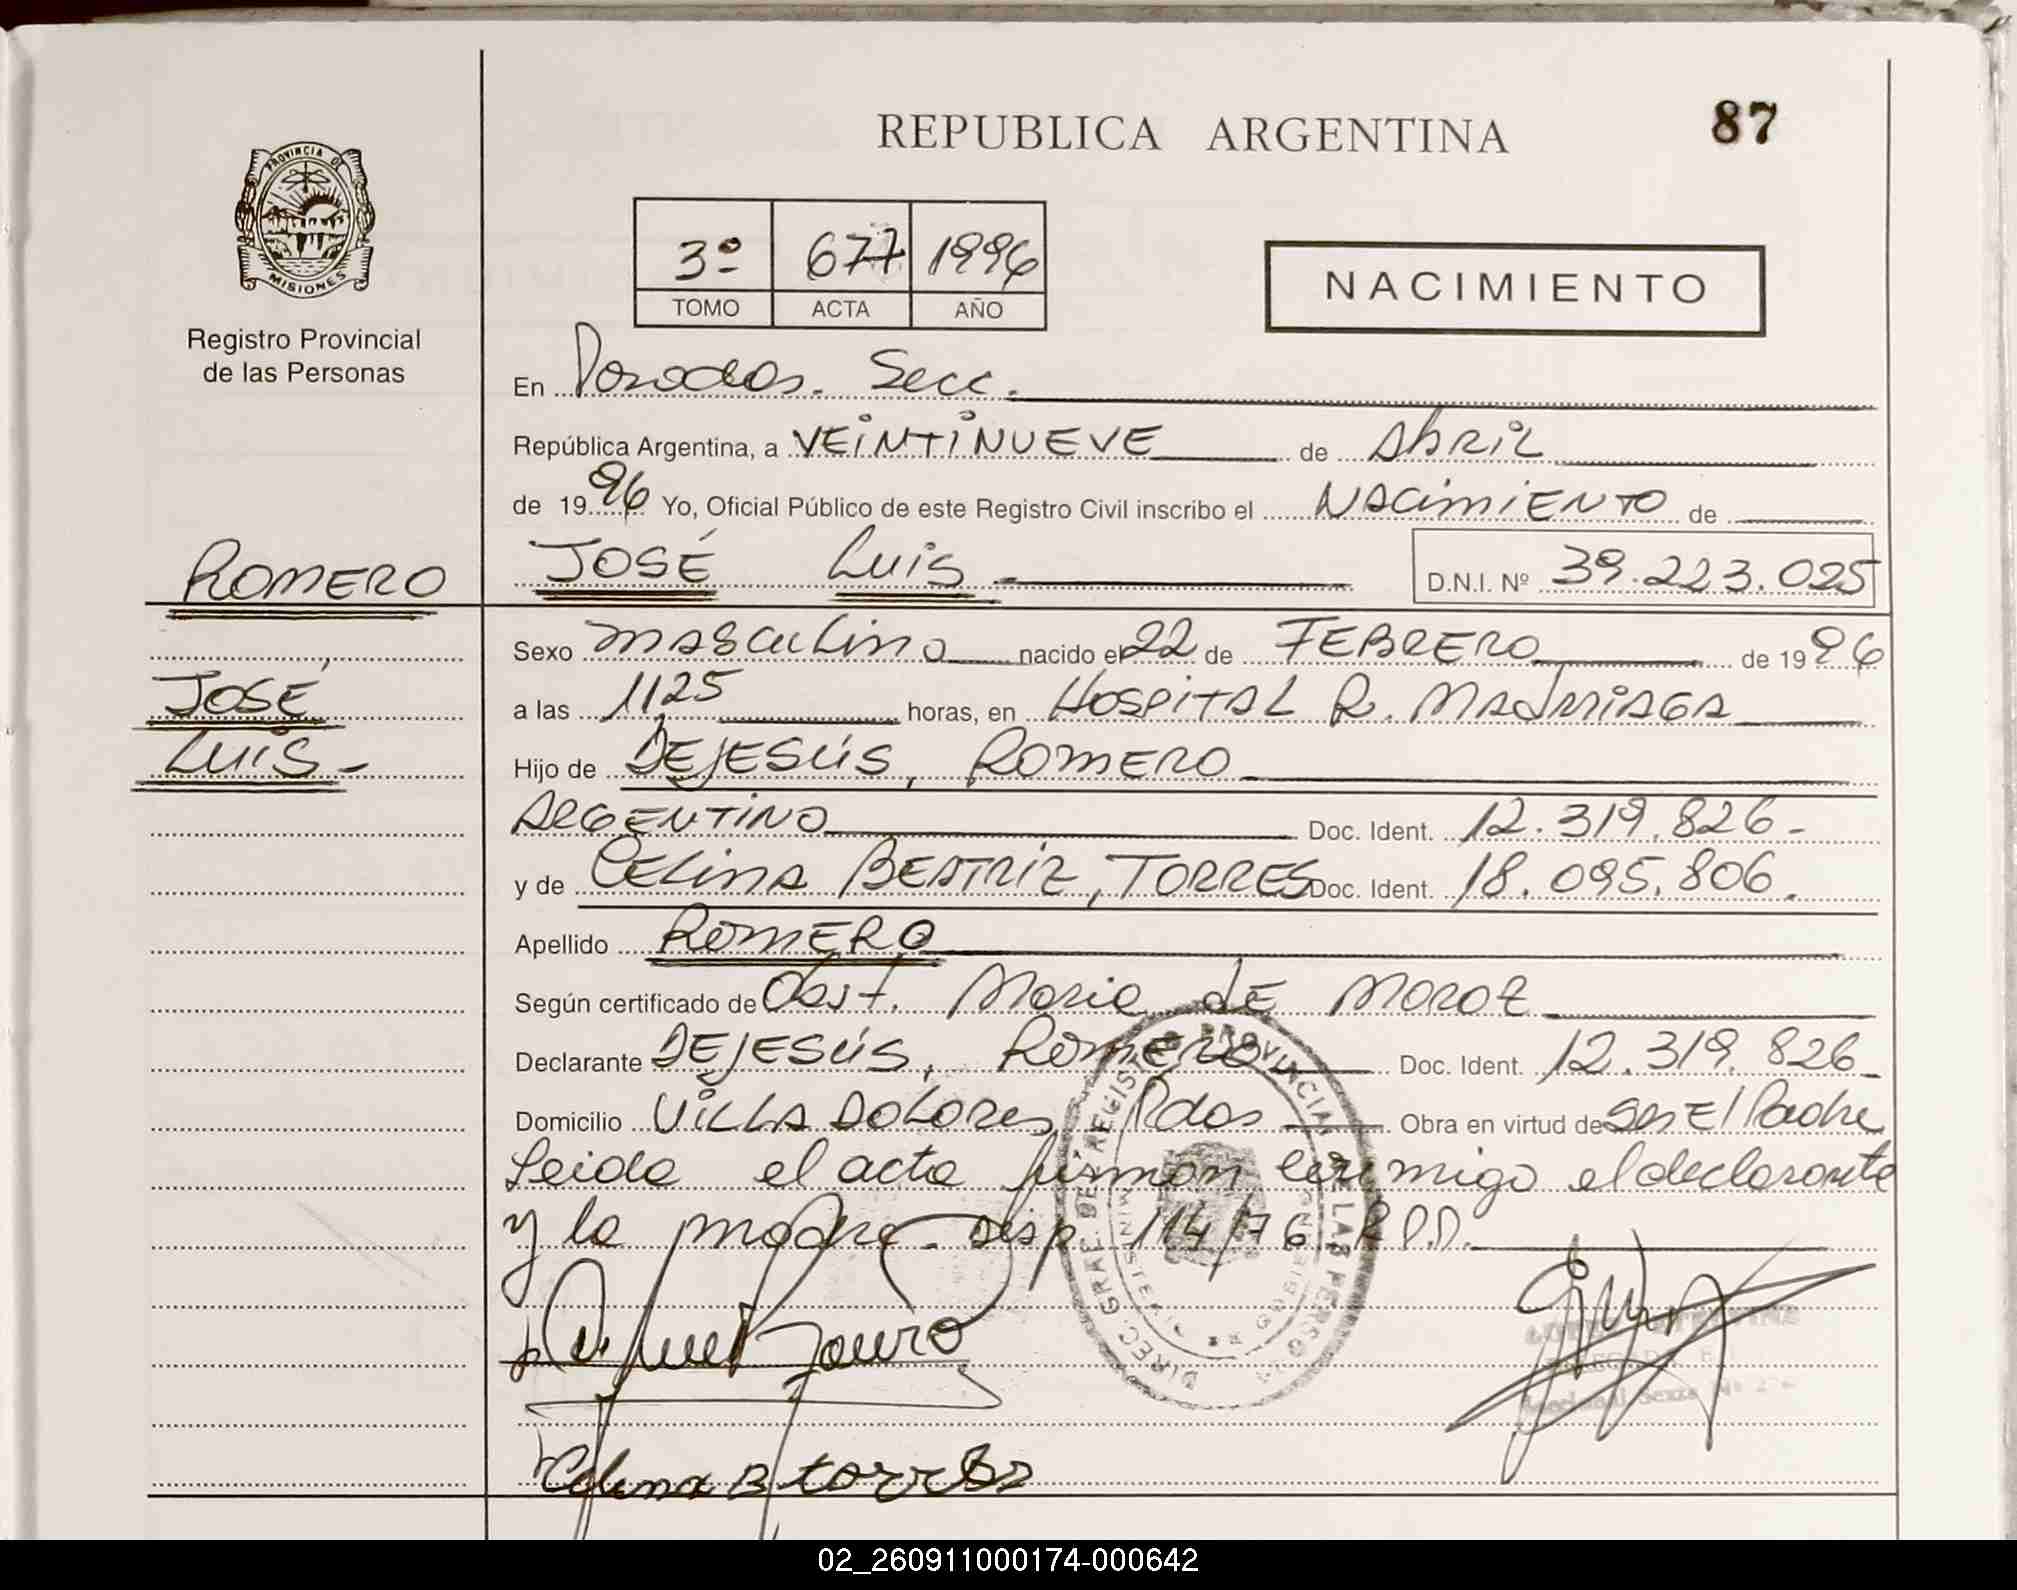 REPUBLICA ARGENTINA
87
PROVINCIA DE
MISIONES
Registro Provincial
de las Personas
3º 677 1996
TOMO ACTA AÑO
NACIMIENTO
En Posadas. Secc.
República Argentina, a VEINTINUEVE de Abril
de 1996 Yo, Oficial Público de este Registro Civil inscribo el NACIMIENTO de
ROMERO
JOSÉ Luis D.N.I. Nº 39.223.025
JOSÉ
LUIS-
Sexo masculino nacido el 22 de FEBRERO de 1996
a las 1125 horas, en HOSPITAL R. MADARIAGA
Hijo de DEJESÚS, ROMERO
ARGENTINO Doc. Ident. 12.319.826-
y de CELINA BEATRIZ, TORRES Doc. Ident. 18.095.806.
Apellido ROMERO
Según certificado de Obst. Maria dE Moroz
Declarante DEJESÚS, ROMERO Doc. Ident. 12.319.826-
Domicilio VILLA DOLORES Pdas Obra en virtud de Ser El Padre
Leida el acta firman conmigo el declarante
y la madre. Disp 114/76 R.P.P.
DIREC. GRAL. DEL REGISTRO PROVINCIAL DE LAS PERSONAS
MINISTERIO DE GOBIERNO
Celina B torres
02_260911000174-000642